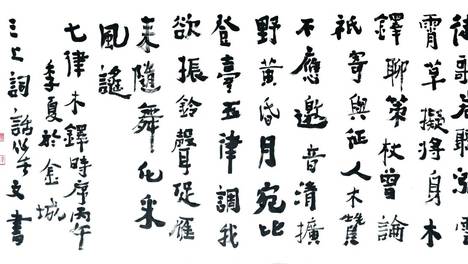 歌
霄草擬將身木
鐸聊策杖曾論
祇寄與征人木
不應邀音清擴
野黃昏月宛比
登臺五律調我
欲振鈴聲促雁
來隨舞化采
風謠
七律木鐸時序丙午
季夏於金城
三上詞話文書